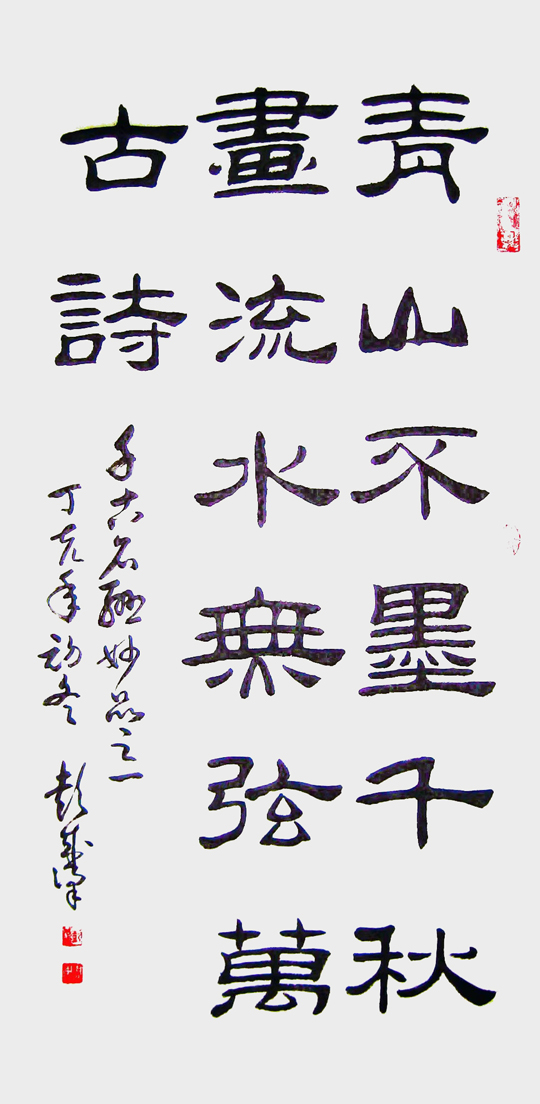 青山不墨千秋
畫流水無弦萬
古詩
千古名聯妙品之一
丁亥年初冬 彭